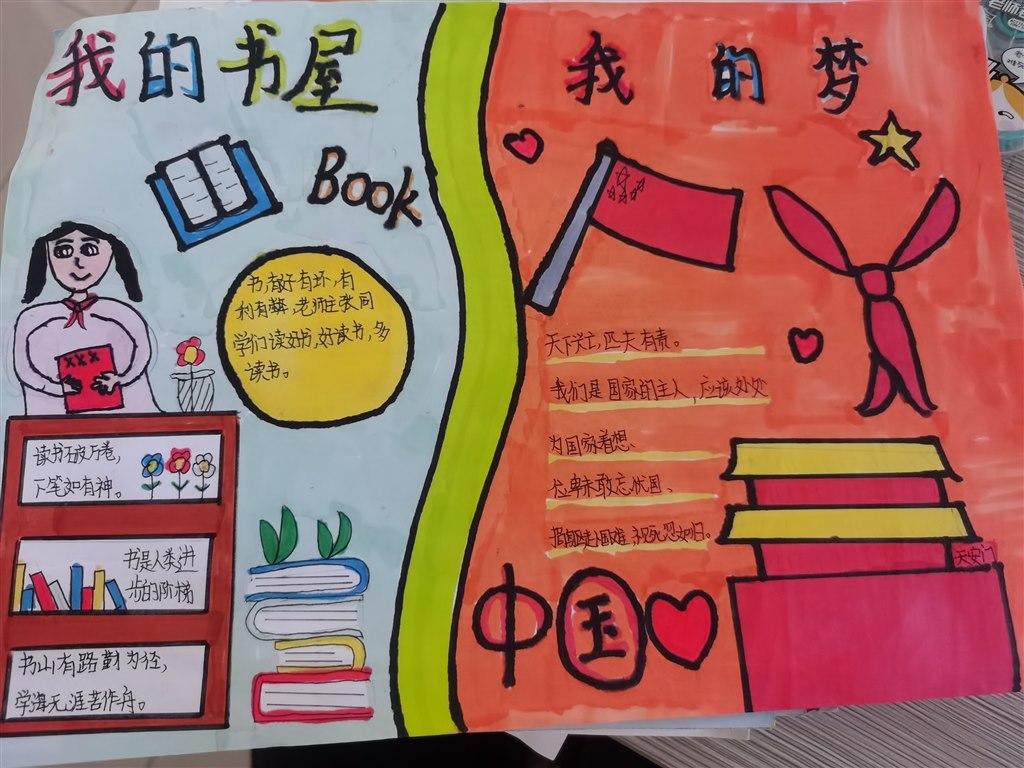 我的书屋
Book
书,有好有坏,有
利有弊,老师主张同
学们读好书,好读书,多
读书。
读书破万卷,
下笔如有神。
书是人类进
步的阶梯
书山有路勤为径,
学海无涯苦作舟。
我的梦
天下兴亡,匹夫有责。
我们是国家的主人,应该处处
为国家着想、
位卑未敢忘忧国、
捐躯赴国难,视死忽如归。
天安门
中国
老师